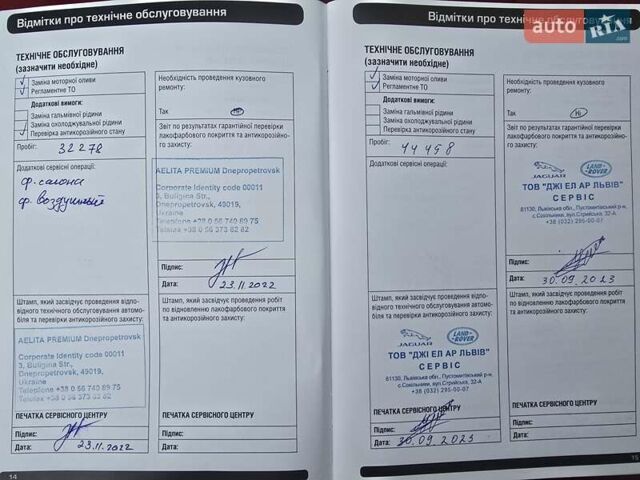 Відмітки про технічне обслуговування
ТЕХНІЧНЕ ОБСЛУГОВУВАННЯ
(зазначити необхідне)
Заміна моторної оливи
Регламентне ТО
Додаткові вимоги:
Заміна гальмівної рідини
Заміна охолоджувальної рідини
Перевірка антикорозійного стану
Пробіг: 32278
Додаткові сервісні операції:
ф. салона
ф. воздушный
Штамп, який засвідчує проведення відпо-
відного технічного обслуговування автомо-
біля та перевірки антикорозійного захисту:
AELITA PREMIUM Dnepropetrovsk
Corporate Identity code 00011
3, Buligina Str.,
Dnepropetrovsk, 49019,
Ukraine
Telephone +38 0 56 740 89 75
Telefax +38 0 56 373 82 82
ПЕЧАТКА СЕРВІСНОГО ЦЕНТРУ
Підпис:
Дата: 23.11.2022
14
Необхідність проведення кузовного
ремонту:
Так Ні
Звіт по результатах гарантійної перевірки
лакофарбового покриття та антикорозійно-
го захисту:
AELITA PREMIUM Dnepropetrovsk
Corporate Identity code 00011
3, Buligina Str.,
Dnepropetrovsk, 49019,
Ukraine
Telephone +38 0 56 740 89 75
Telefax +38 0 56 373 82 82
Підпис:
Дата: 23.11.2022
Штамп, який засвідчує проведення робіт
по відновленню лакофарбового покриття
та антикорозійного захисту:
Відмітки про технічне обслуговування
auto RIA
.com
ТЕХНІЧНЕ ОБСЛУГОВУВАННЯ
(зазначити необхідне)
Заміна моторної оливи
Регламентне ТО
Додаткові вимоги:
Заміна гальмівної рідини
Заміна охолоджувальної рідини
Перевірка антикорозійного стану
Пробіг: 44458
Додаткові сервісні операції:
Штамп, який засвідчує проведення відпо-
відного технічного обслуговування автомо-
біля та перевірки антикорозійного захисту:
JAGUAR LAND ROVER
ТОВ "ДЖІ ЕЛ АР ЛЬВІВ"
СЕРВІС
81130, Львівська обл., Пустомитівський р-н,
с.Сокільники, вул.Стрийська, 32-А
+38 (032) 295-00-07
ПЕЧАТКА СЕРВІСНОГО ЦЕНТРУ
Підпис:
Дата: 30.09.2023
Необхідність проведення кузовного
ремонту:
Так Ні
Звіт по результатах гарантійної перевірки
лакофарбового покриття та антикорозійно-
го захисту:
JAGUAR LAND ROVER
ТОВ "ДЖІ ЕЛ АР ЛЬВІВ"
СЕРВІС
81130, Львівська обл., Пустомитівський р-н,
с.Сокільники, вул.Стрийська, 32-А
+38 (032) 295-00-07
Підпис:
Дата: 30.09.2023
Штамп, який засвідчує проведення робіт
по відновленню лакофарбового покриття
та антикорозійного захисту:
15